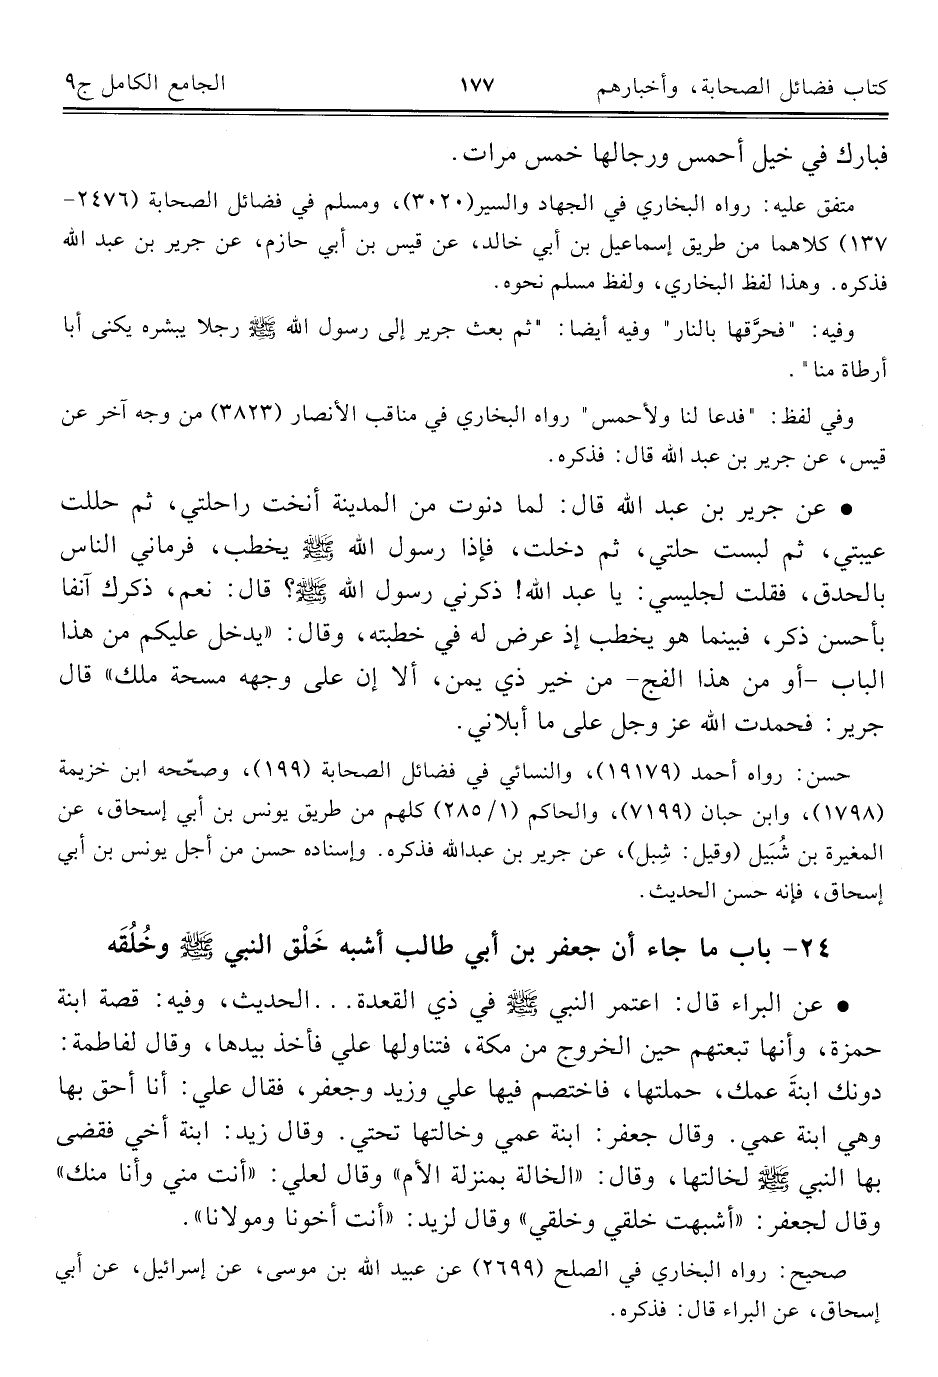 كتاب فضائل الصحابة، وأخبارهم ١٧٧ الجامع الكامل ج٩
فبارك في خيل أحمس ورجالها خمس مرات.
متفق عليه: رواه البخاري في الجهاد والسير(٣٠٢٠)، ومسلم في فضائل الصحابة (٢٤٧٦-
١٣٧) كلاهما من طريق إسماعيل بن أبي خالد، عن قيس بن أبي حازم، عن جرير بن عبد الله
فذكره. وهذا لفظ البخاري، ولفظ مسلم نحوه.
وفيه: "فحرَّقها بالنار" وفيه أيضا: "ثم بعث جرير إلى رسول الله ﷺ رجلا يبشره يكنى أبا
أرطاة منا".
وفي لفظ: "فدعا لنا ولأحمس" رواه البخاري في مناقب الأنصار (٣٨٢٣) من وجه آخر عن
قيس، عن جرير بن عبد الله قال: فذكره.
• عن جرير بن عبد الله قال: لما دنوت من المدينة أنخت راحلتي، ثم حللت
عيبتي، ثم لبست حلتي، ثم دخلت، فإذا رسول الله ﷺ يخطب، فرماني الناس
بالحدق، فقلت لجليسي: يا عبد الله! ذكرني رسول الله ﷺ؟ قال: نعم، ذكرك آنفا
بأحسن ذكر، فبينما هو يخطب إذ عرض له في خطبته، وقال: «يدخل عليكم من هذا
الباب -أو من هذا الفج- من خير ذي يمن، ألا إن على وجهه مسحة ملك» قال
جرير: فحمدت الله عز وجل على ما أبلاني.
حسن: رواه أحمد (١٩١٧٩)، والنسائي في فضائل الصحابة (١٩٩)، وصحّحه ابن خزيمة
(١٧٩٨)، وابن حبان (٧١٩٩)، والحاكم (١/٢٨٥) كلهم من طريق يونس بن أبي إسحاق، عن
المغيرة بن شُبَيل (وقيل: شِبل)، عن جرير بن عبدالله فذكره. وإسناده حسن من أجل يونس بن أبي
إسحاق، فإنه حسن الحديث.
٢٤- باب ما جاء أن جعفر بن أبي طالب أشبه خَلْق النبي ﷺ وخُلُقَه
• عن البراء قال: اعتمر النبي ﷺ في ذي القعدة...الحديث، وفيه: قصة ابنة
حمزة، وأنها تبعتهم حين الخروج من مكة، فتناولها علي فأخذ بيدها، وقال لفاطمة:
دونك ابنةَ عمك، حملتها، فاختصم فيها علي وزيد وجعفر، فقال علي: أنا أحق بها
وهي ابنة عمي. وقال جعفر: ابنة عمي وخالتها تحتي. وقال زيد: ابنة أخي فقضى
بها النبي ﷺ لخالتها، وقال: «الخالة بمنزلة الأم» وقال لعلي: «أنت مني وأنا منك»
وقال لجعفر: «أشبهت خلقي وخلقي» وقال لزيد: «أنت أخونا ومولانا».
صحيح: رواه البخاري في الصلح (٢٦٩٩) عن عبيد الله بن موسى، عن إسرائيل، عن أبي
إسحاق، عن البراء قال: فذكره.